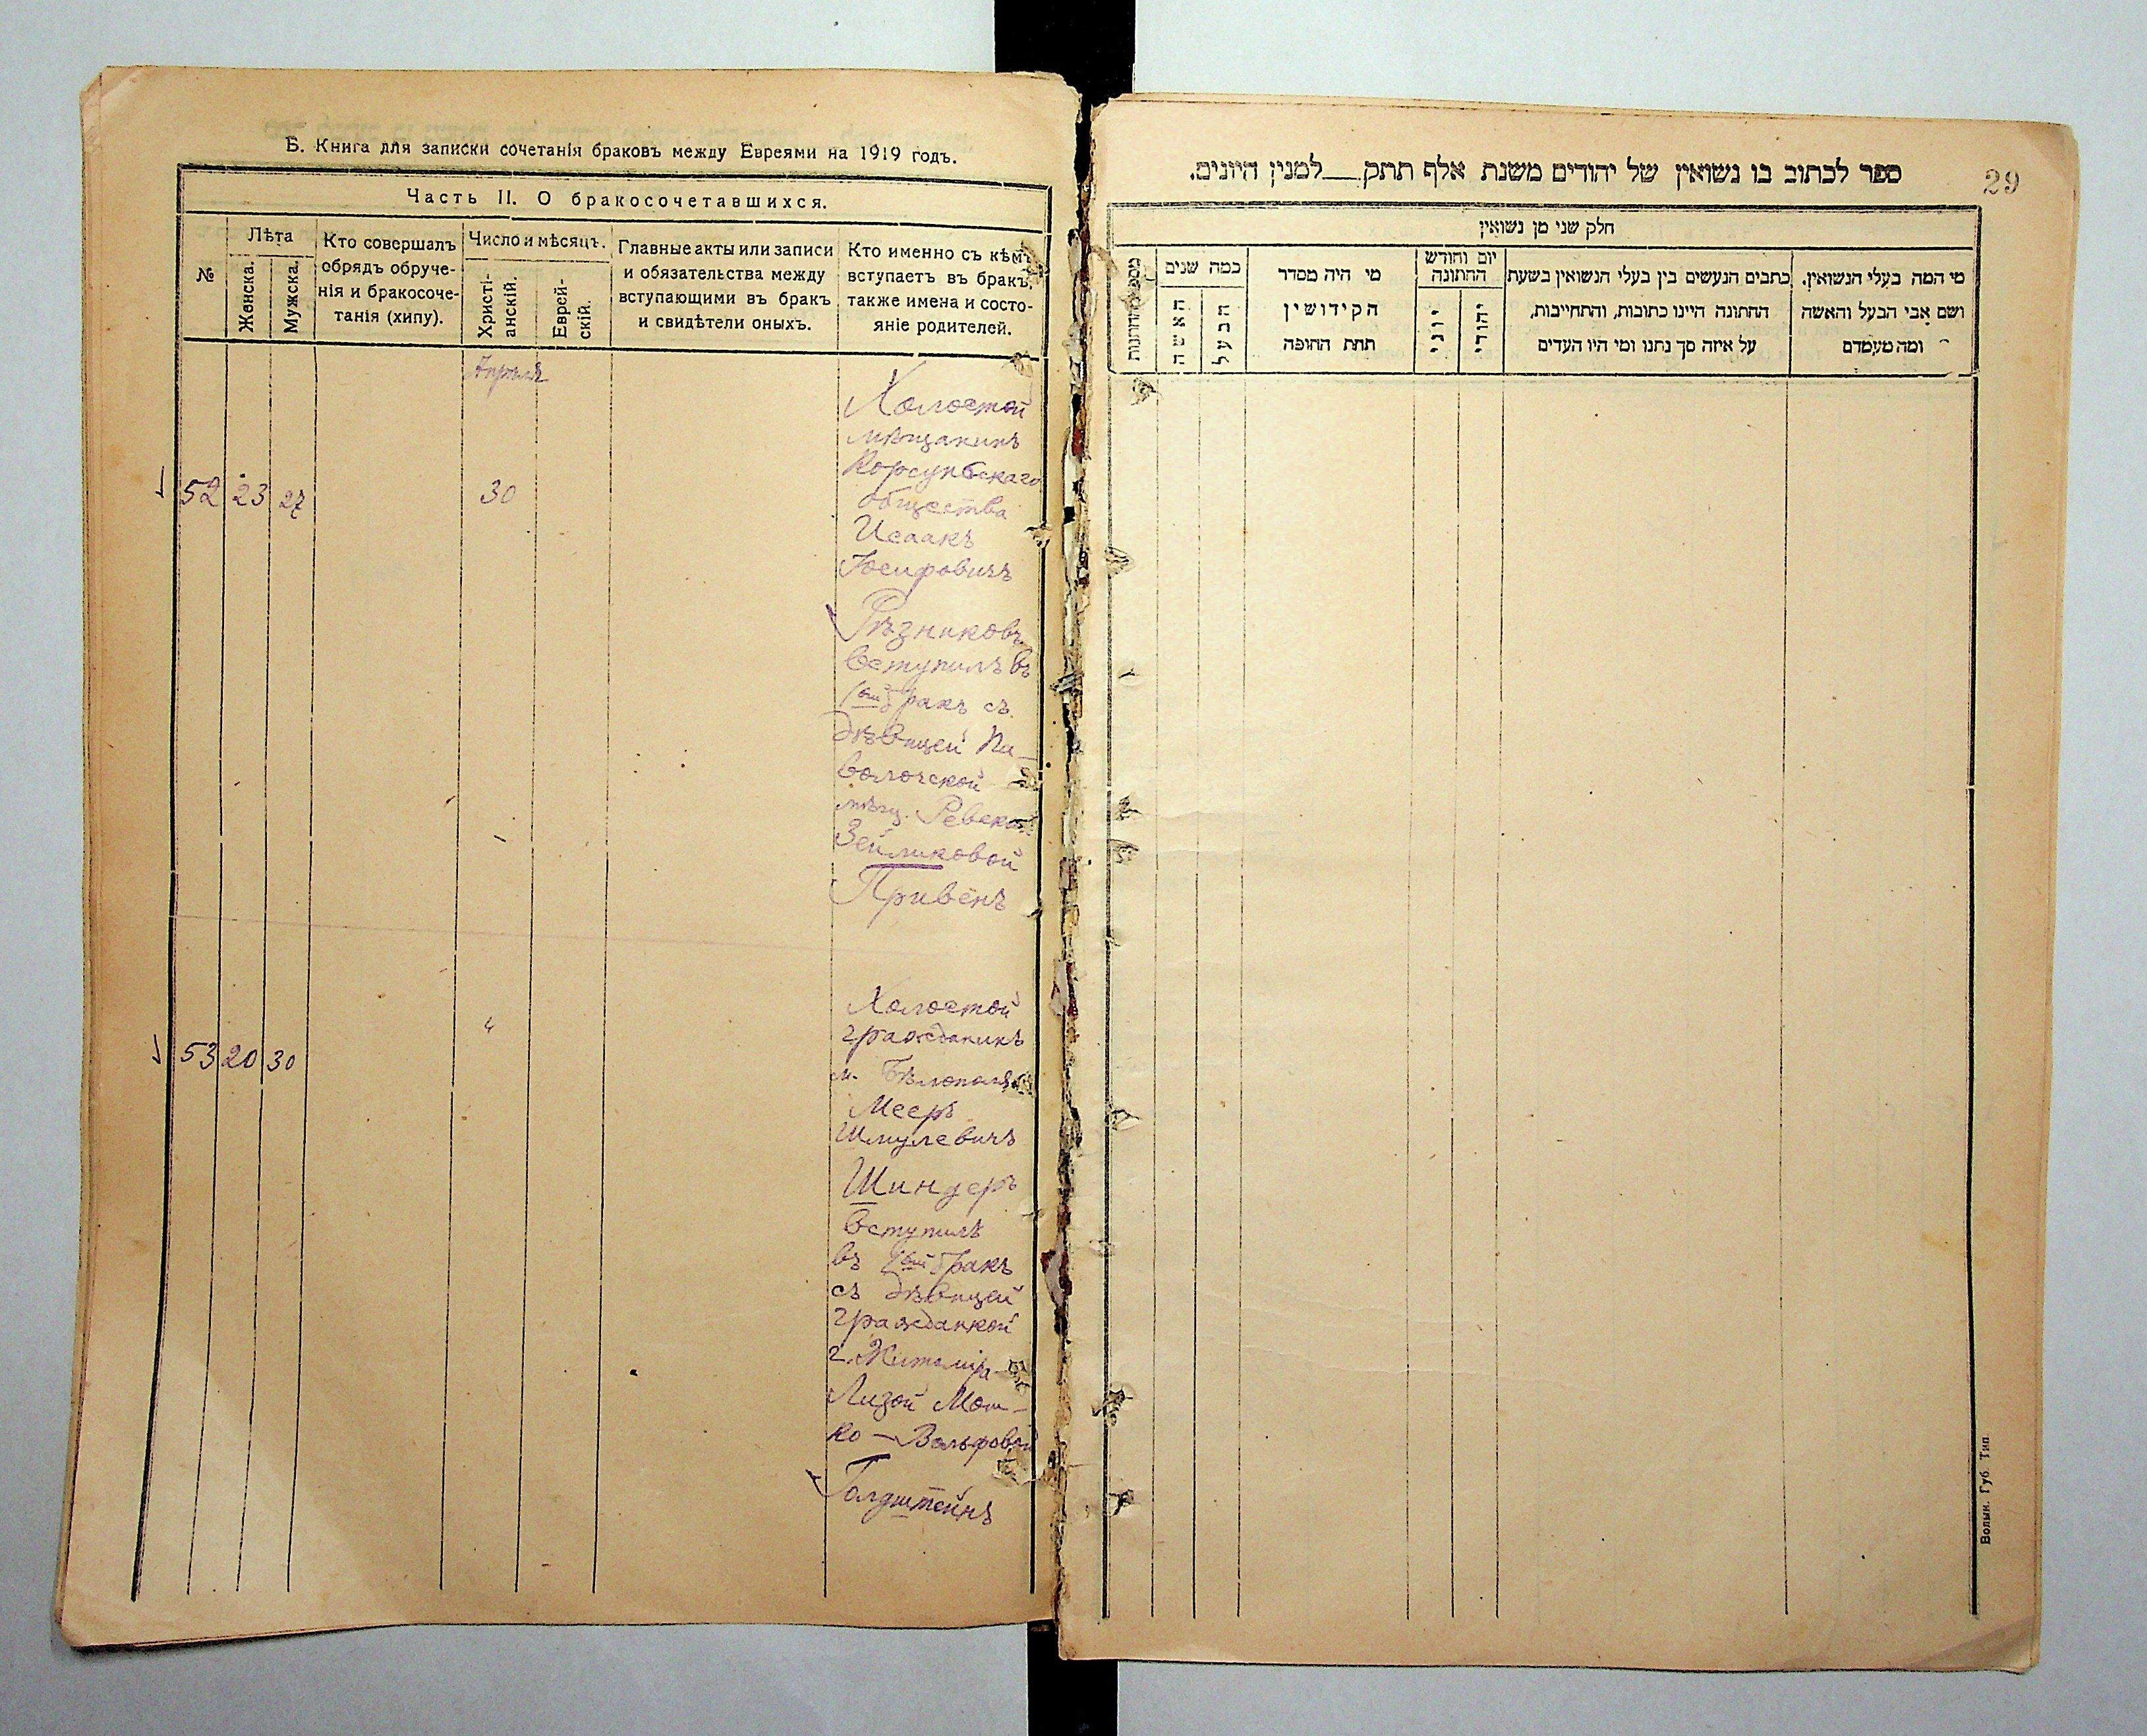 Б. Книга для записки сочетанія браковъ между Евреями на 1919 годъ.
Часть II. О бракосочетавшихся.
№
Лѣта
Женска.
Мужска.
Кто совершалъ
обрядъ обруче-
нія и бракосоче-
танія (хипу).
Число и мѣсяцъ.
Христі-
анскій.
Еврей-
скій.
Главные акты или записи
и обязательства между
вступающими въ бракъ
и свидѣтели оныхъ.
Кто именно съ кѣмъ
вступаетъ въ бракъ,
также имена и состо-
яніе родителей.
Апрѣля
52 23 27
30
Холостой
мѣщанинъ
Корсунбскаго
общества
Исаакъ
Іосифовичъ
Рѣзниковъ
вступилъ въ
1ый бракъ съ
дѣвицей Па-
волочской
мѣщ. Ревекой
Зейликовой
Привенъ
53 20 30
4
Холостой
гражданинъ
м. Бѣлополь
Мееръ
Шмулевичъ
Шиндеръ
вступилъ
въ 1ый бракъ
съ дѣвицей
гражданкой
г. Житоміра
Лизой Мош-
ко-Вольфовой
Голдштейнъ
ספר לכתוב בו נשואין של יהודים משנת אלף תתק__למנין היונים.
29
חלק שני מן נשואין
מספר החתונות
כמה שנים
האשה
הבעל
מי היה מסדר
הקידושין
תחת החופה
יום וחודש
החתונה
יוני
יהודי
כתבים הנעשים בין בעלי הנשואין בשעת
החתונה היינו כתובות, והתחייבות,
על איזה סך נתנו ומי היו העדים
מי המה בעלי הנשואין.
ושם אבי הבעל והאשה
ומה מעמדם
Волын. Губ. Тип.